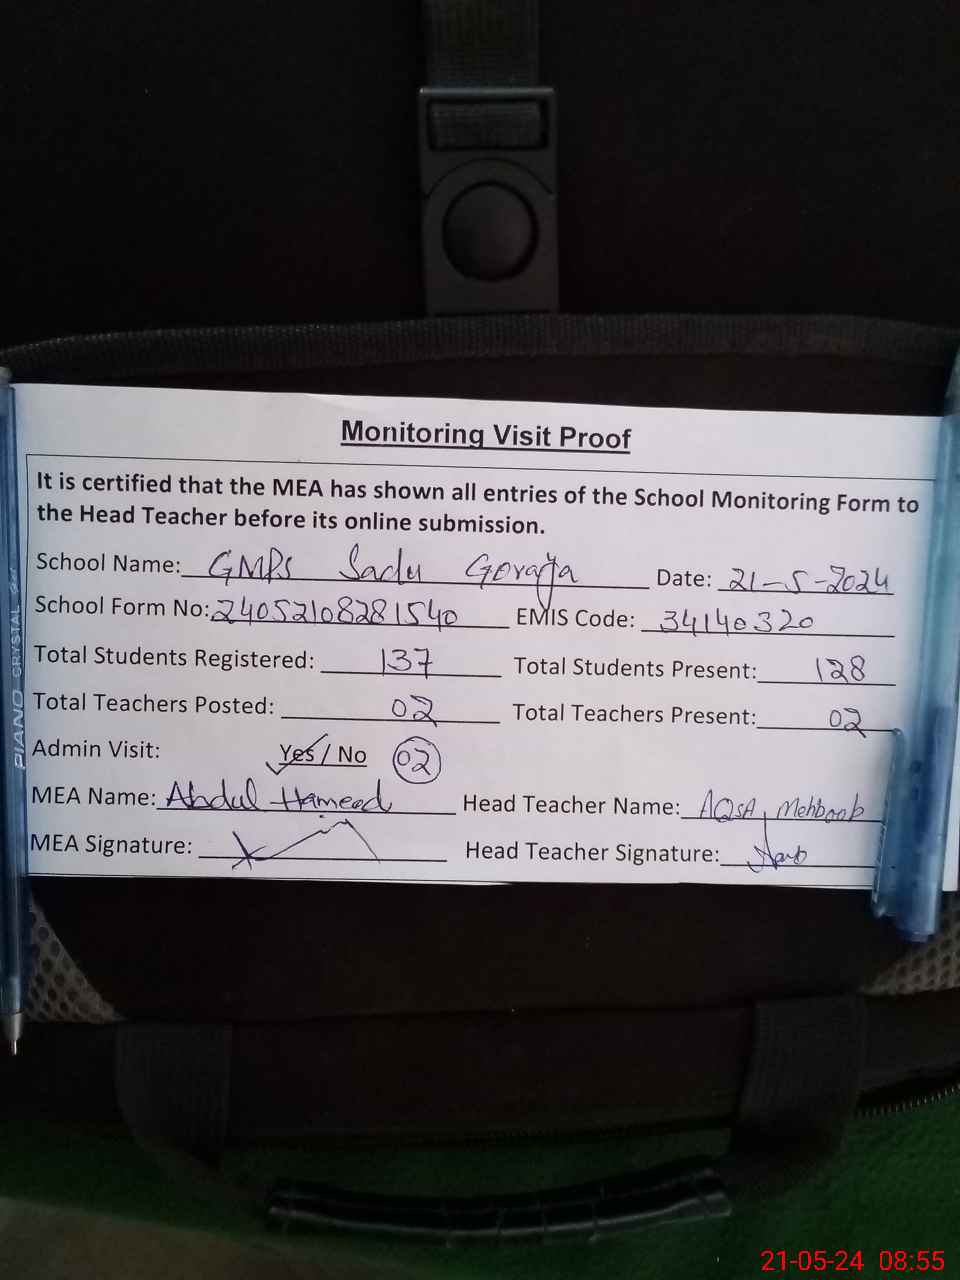 Monitoring Visit Proof
It is certified that the MEA has shown all entries of the School Monitoring Form to
the Head Teacher before its online submission.
School Name: GMPS Sadu Goraya Date: 21-5-2024
School Form No: 24052108281540 EMIS Code: 34140320
Total Students Registered: 137 Total Students Present: 128
Total Teachers Posted: 02 Total Teachers Present: 02
Admin Visit: Yes / No 02
MEA Name: Abdul Hameed Head Teacher Name: AQSA Mehboob
MEA Signature: Head Teacher Signature:
PIANO CRYSTAL Gel
21-05-24 08:55